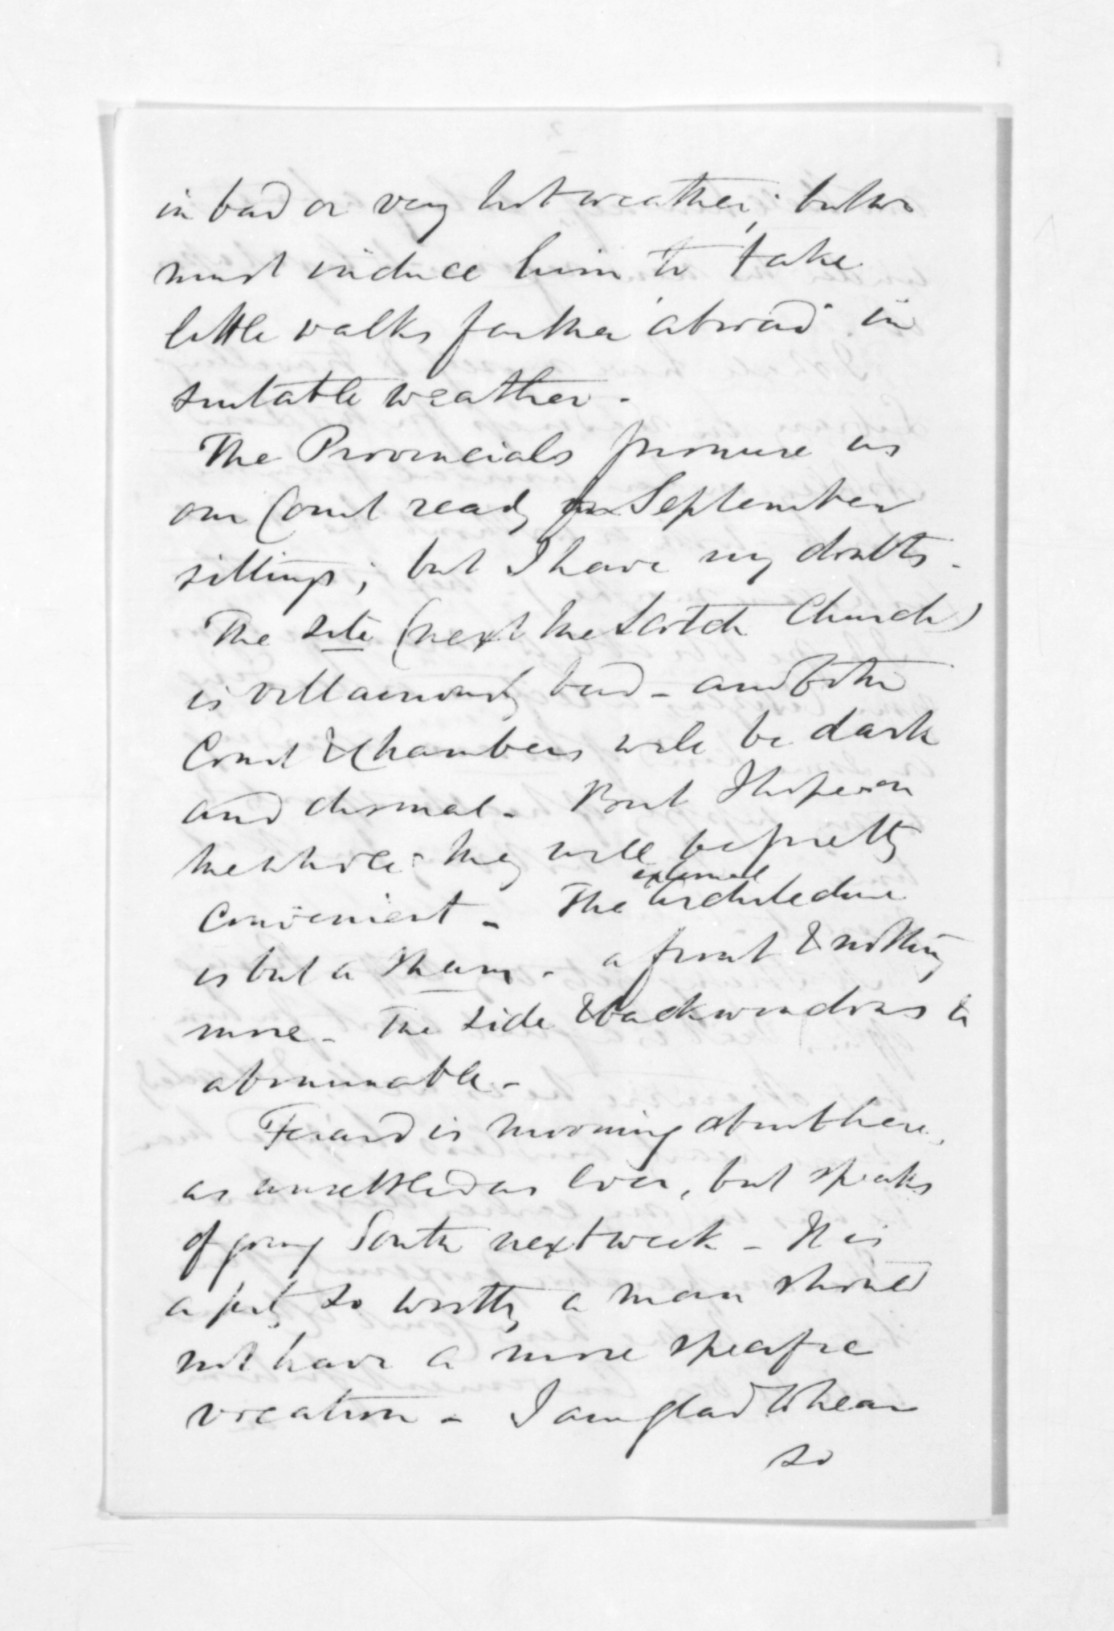 in bad or very hot weather; but we
must induce him to take
little walks farther abroad in
suitable weather.
The Provincials promise us
our Court ready for September
sittings; but I have my doubts.
The site (next the Scotch Church)
is villainously bad - and both
Court & Chambers will be dark
and dismal. But I hope on
the whole they will be pretty
convenient - The external architecture
is but a sham - a front & nothing
more - The side & back windows
abominable -
Fenard is mooning about here,
as unsettled as ever, but speaks
of going South next week - It is
a pity so worthy a man should
not have a more specific
vocation - I am glad to hear
so